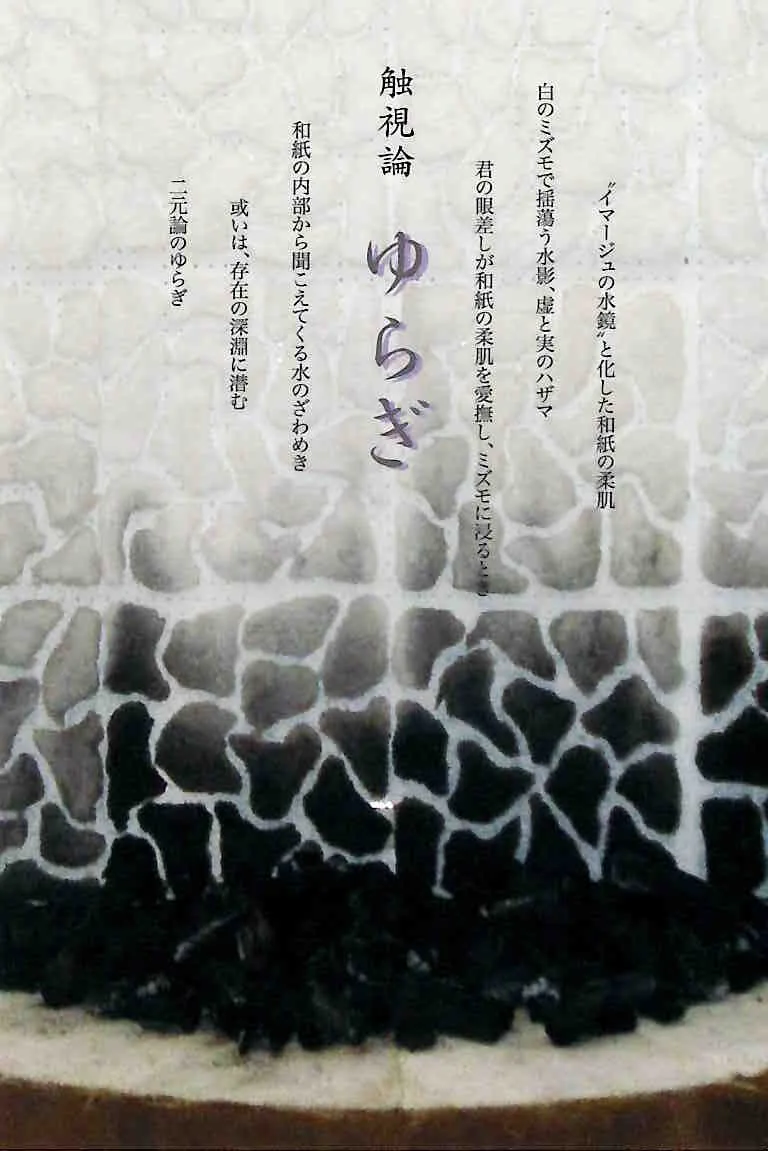 〝イマージュの水鏡〟と化した和紙の柔肌
白のミズモで揺蕩う水影、虚と実のハザマ
君の眼差しが和紙の柔肌を愛撫し、ミズモに浸るとき
触視論 ゆらぎ
和紙の内部から聞こえてくる水のざわめき
或いは、存在の深淵に潜む
二元論のゆらぎ